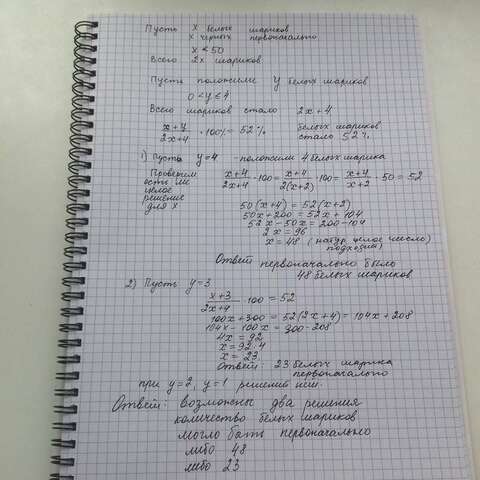 Пусть x белых шариков
x черных первоначально
x < 50
Всего 2x шариков
Пусть положили y белых шариков
0 < y ≤ 4
Всего шариков стало 2x+4
(x+y)/(2x+4) · 100% = 52% белых шариков стало 52%
1) Пусть y=4 - положили 4 белых шарика
Проверим есть ли целое решение для x
(x+4)/(2x+4) · 100 = (x+4)/(2(x+2)) · 100 = (x+4)/(x+2) · 50 = 52
50(x+4) = 52(x+2)
50x+200 = 52x+104
52x-50x = 200-104
2x = 96
x = 48 (натур целое число) подходит
Ответ первоначально было
48 белых шариков
2) Пусть y=3
(x+3)/(2x+4) · 100 = 52
100x+300 = 52(2x+4) = 104x+208
104x-100x = 300-208
4x = 92
x = 92:4
x = 23
Ответ 23 белых шарика
первоначально
при y=2, y=1 решений нет.
Ответ: возможны два решения
количество белых шариков
могло быть первоначально
либо 48
либо 23